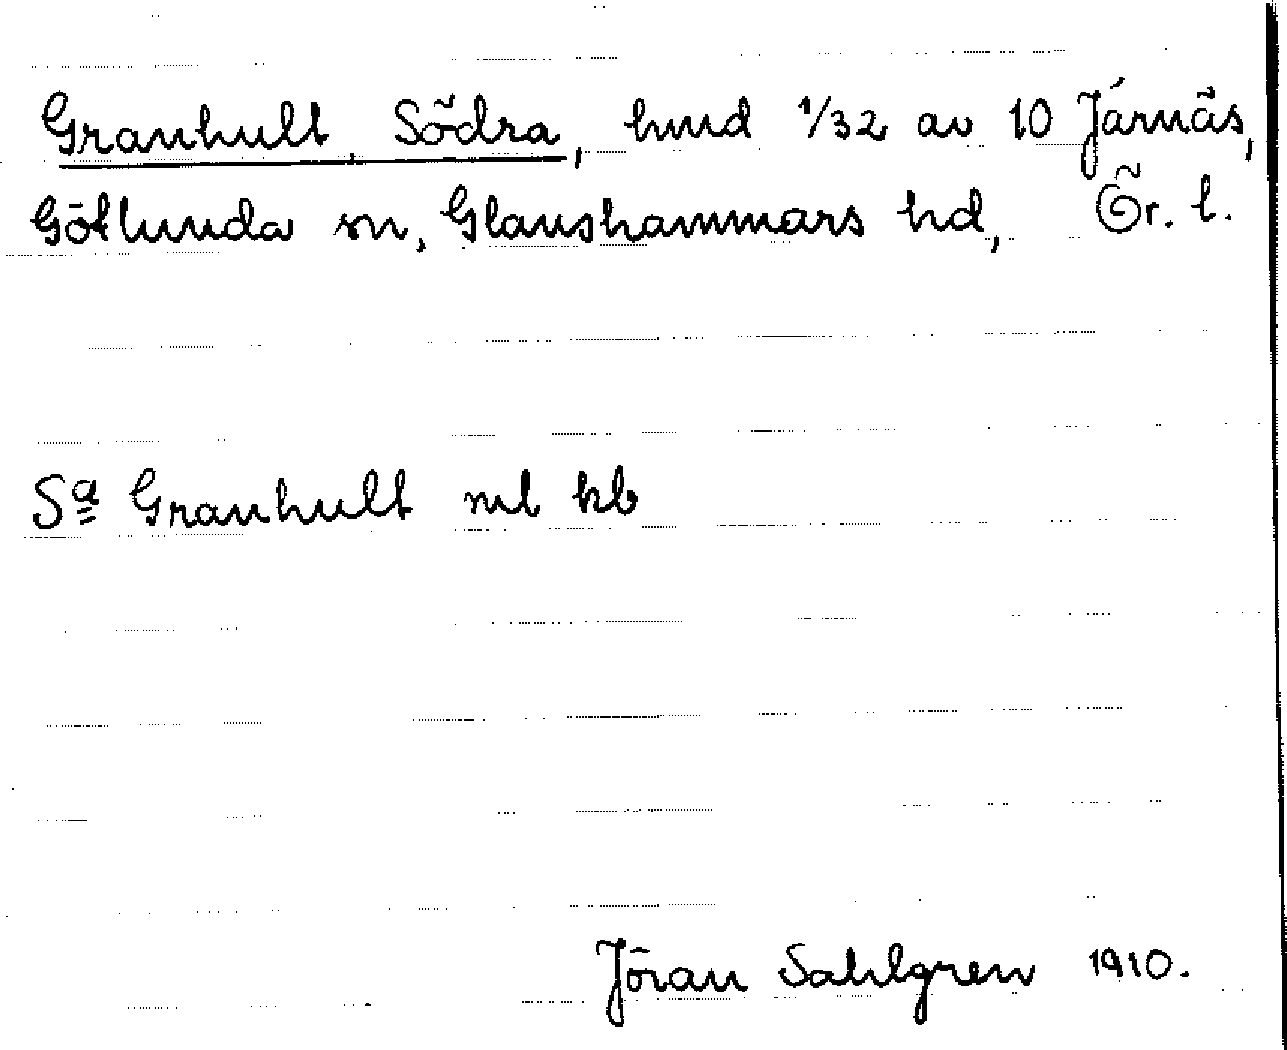 Granhult, Södra, hmd 1/32 av 10 Järnäs,
Götlunda sn, Glanshammars hd, Ör. l.
Sa Granhult ml kb
Jöran Sahlgren 1910.